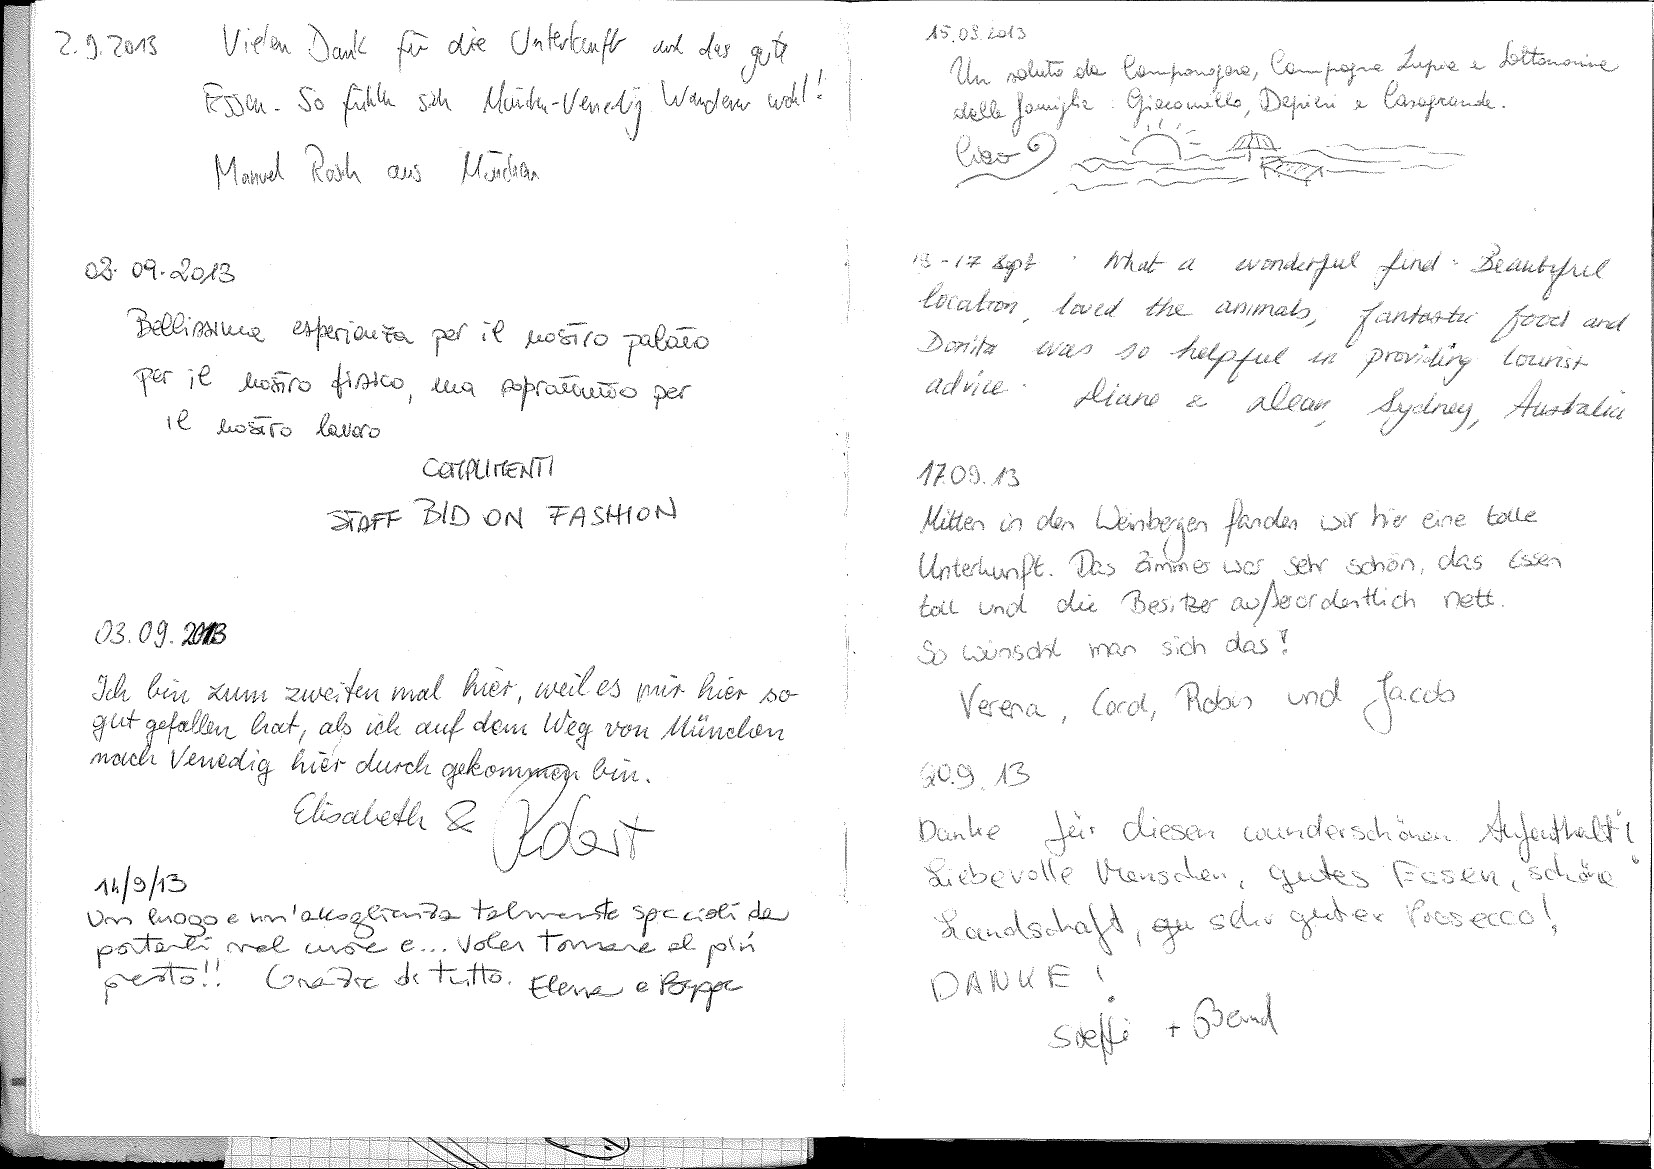 2.9.2013 Vielen Dank für die Unterkunft und das gute
Essen. So fühlen sich München-Venedig Wanderer wohl!
Manuel Rosch aus München
03.09.2013
Bellissima esperienza per il nostro palato
per il nostro fisico, ma soprattutto per
il nostro lavoro
COMPLIMENTI
STAFF BID ON FASHION
03.09.2013
Ich bin zum zweiten mal hier, weil es mir hier so
gut gefallen hat, als ich auf dem Weg von München
nach Venedig hier durch gekommen bin.
Elisabeth & Robert
14/9/13
Un luogo e un'accoglienza talmente speciali da
portarli nel cuore e... voler tornare al più
presto!! Grazie di tutto. Elena e Beppe
15.09.2013
Un saluto da Camponogara, Campagna Lupia e Sottomarina
delle famiglie: Giacomello, Depieri e Casagrande.
Ciao
13-17 Sept. What a wonderful find. Beautiful
location, loved the animals, fantastic food and
Donita was so helpful in providing tourist
advice. Diane & Dean, Sydney, Australia
17.09.13
Mitten in den Weinbergen fanden wir hier eine tolle
Unterkunft. Das Zimmer war sehr schön, das Essen
toll und die Besitzer außerordentlich nett.
So wünscht man sich das!
Verena, Cord, Robin und Jacob
20.9.13
Danke für diesen wunderschönen Aufenthalt!
Liebevolle Menschen, gutes Essen, schöne
Landschaft, sehr guter Prosecco!
DANKE!
Steffi + Bernd